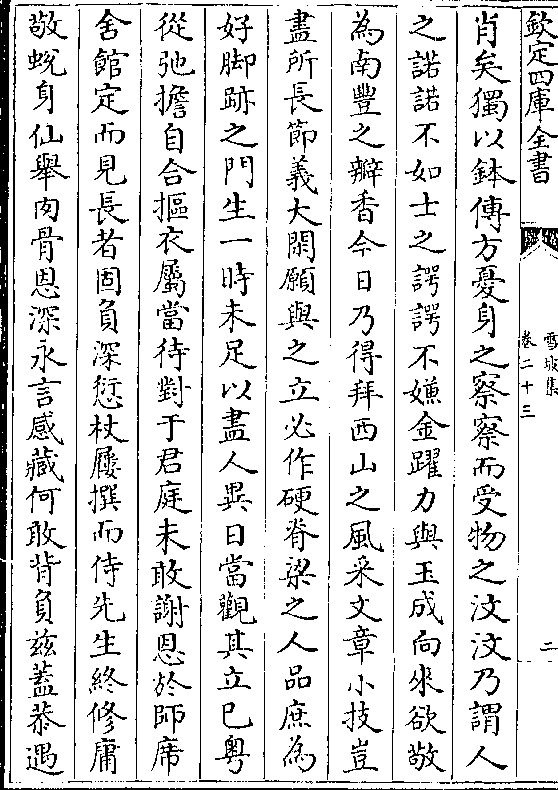 欽定四庫全書
雪坡集
卷二十三
二
肖矣獨以鉢傳方憂身之察察而受物之汶汶乃謂人
之諾諾不如士之諤諤不嫌金躍力與玉成向來欲敬
為南豐之瓣香今日乃得拜西山之風采文章小技豈
盡所長節義大閑願與之立必作硬脊梁之人品庶為
好脚跡之門生一時未足以盡人異日當觀其立已粤
從弛擔自合摳衣屬當待對于君庭未敢謝恩於師席
舍館定而見長者固負深愆杖屨撰而侍先生終修庸
敬蛻身仙舉肉骨恩深永言感藏何敢背負兹蓋恭遇